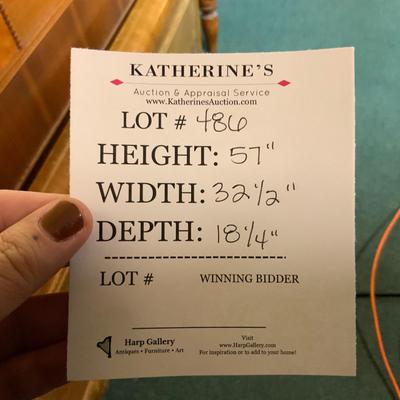 KATHERINE'S
Auction & Appraisal Service
www.KatherinesAuction.com
LOT # 486
HEIGHT: 57"
WIDTH: 32 1/2"
DEPTH: 18 1/4"
LOT # WINNING BIDDER
Harp Gallery
Antiques • Furniture • Art
Visit
www.HarpGallery.com
For inspiration or to add to your home!